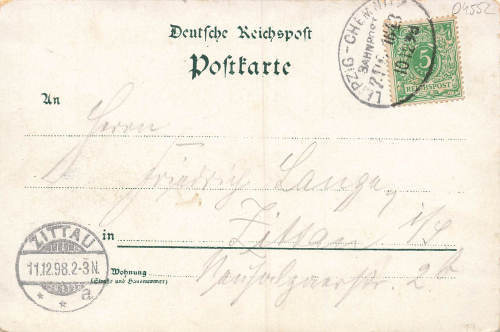 04552
Deutsche Reichspost
Postkarte
LEIPZIG-CHEMNITZ
BAHNPOST
10.12.98
5
REICHSPOST
An
Herrn
Friedrich Lange
in Zittau i/S
ZITTAU
11.12.98.2-3N.
* * a
Wohnung
(Straße und Hausnummer)
2b